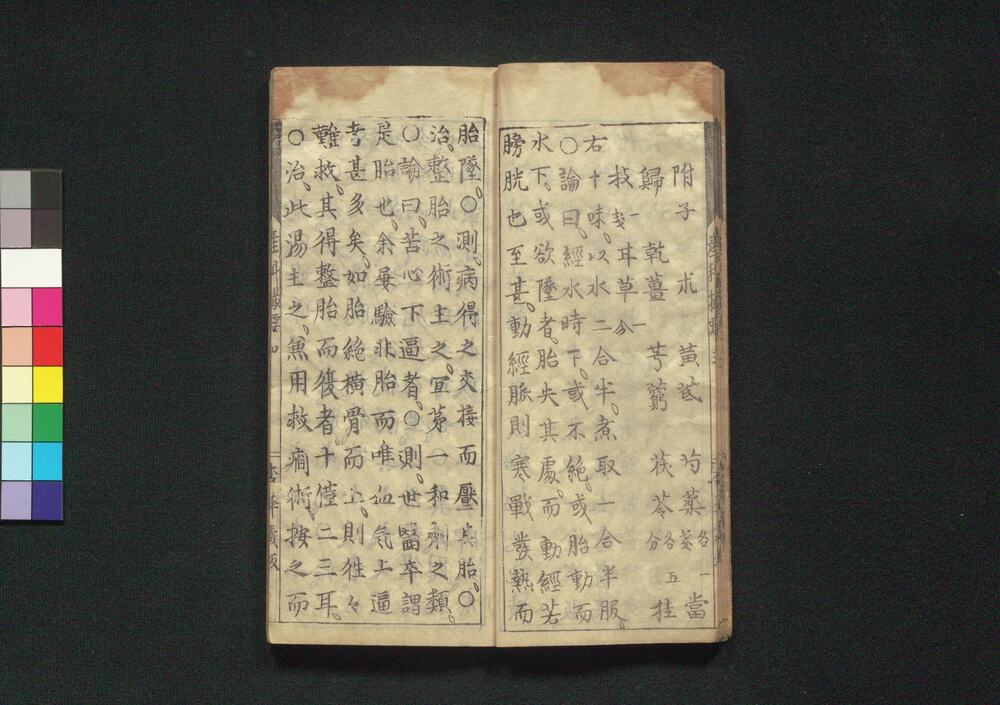 附子　朮　黃芪　芍藥各一錢　當
歸　乾薑　芎藭　茯苓各五分　桂
枝一錢　耳草一分
右十味以水二合半煮取一合半服
○論曰經水時下或不絕或胎動而
水下或欲墜者胎失其處而動經若
膀胱也至甚動經脈則寒戰發熱而
胎墜○測病得之交接而壓共胎○
治整胎之術主之宜第一和劑之類
○論曰苦心下逼者○測世醫卒謂
是胎也余屢驗非胎而唯血氣上逼
者甚多矣如胎絕橫骨而上則徃々
難救其得整胎而復者十僅二三耳
○治此湯主之兼用救癇術按之而
產科